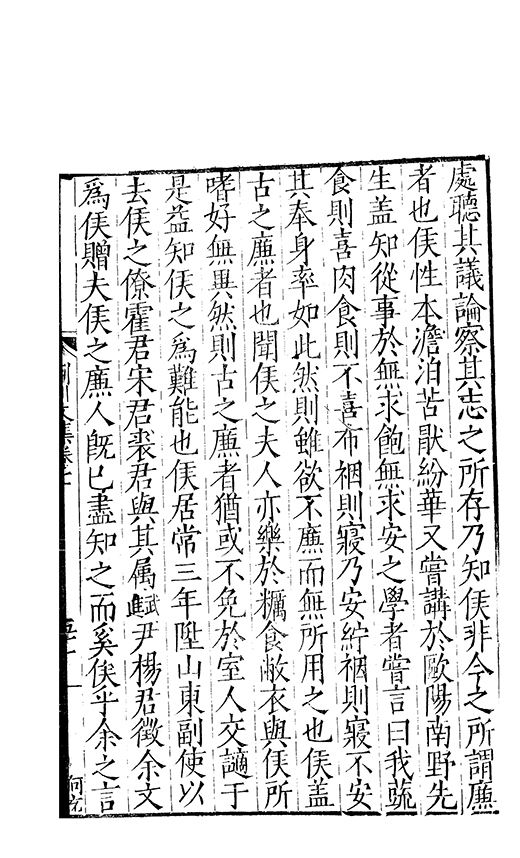 處聽其議論察其志之所存乃知侯非今之所謂廉
者也侯性本澹泊苦厭紛華又嘗講於歐陽南野先
生盖知從事於無求飽無求安之學者嘗言曰我蔬
食則喜肉食則不喜布裀則寢乃安紵裀則寢不安
其奉身率如此然則雖欲不廉而無所用之也侯盖
古之廉者也聞侯之夫人亦樂於糲食敝衣與侯所
嗜好無異然則古之廉者猶或不免於室人交讁于
是益知侯之為難能也侯居常三年陞山東副使以
去侯之僚霍君宋君裘君與其属武進尹楊君徵余文
為侯贈夫侯之廉人旣已盡知之而奚俟乎余之言
荆川文集卷七
何元